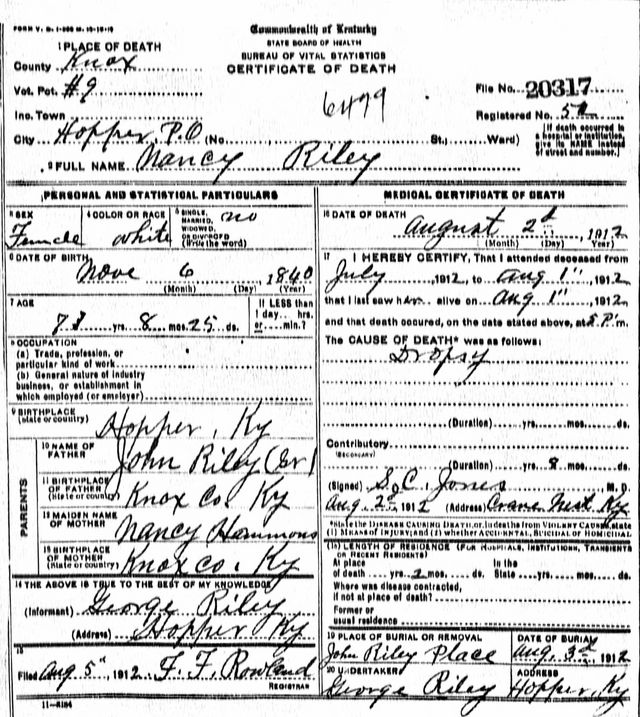 Commonwealth of Kentucky
STATE BOARD OF HEALTH
BUREAU OF VITAL STATISTICS
CERTIFICATE OF DEATH
1 PLACE OF DEATH
County Knox
Vot. Pct. #9
Inc. Town
City Hopper, P.O (No. St., Ward)
6499
File No. 20317
Registered No. 5
[If death occurred in a hospital or institution, give its NAME instead of street and number.]
2 FULL NAME Nancy Riley
PERSONAL AND STATISTICAL PARTICULARS
3 SEX
Female
4 COLOR OR RACE
White
5 SINGLE, MARRIED, WIDOWED, OR DIVORCED (Write the word)
no
6 DATE OF BIRTH
Nove 6, 1840
(Month) (Day) (Year)
7 AGE
yrs. 8 mos. 25 ds.
If LESS than 1 day... hrs. or... min.?
8 OCCUPATION
(a) Trade, profession, or
particular kind of work
(b) General nature of industry
business, or establishment in
which employed (or employer)
9 BIRTHPLACE
(State or country)
Hopper, Ky
PARENTS
10 NAME OF FATHER
John Riley (Sr)
11 BIRTHPLACE OF FATHER
(State or country)
Knox Co. Ky
12 MAIDEN NAME OF MOTHER
Nancy Hammons
13 BIRTHPLACE OF MOTHER
(State or country)
Knox co. Ky
14 THE ABOVE IS TRUE TO THE BEST OF MY KNOWLEDGE
(Informant) George Riley
(Address) Hopper Ky
15
Filed Aug 5", 1912 F. F. Rowland
REGISTRAR
11-8184
MEDICAL CERTIFICATE OF DEATH
16 DATE OF DEATH
August 2d, 1912
(Month) (Day) (Year)
17 I HEREBY CERTIFY, That I attended deceased from
July, 1912, to Aug 1", 1912
that I last saw her alive on Aug 1", 1912
and that death occured, on the date stated above, at 5 P.m.
The CAUSE OF DEATH* was as follows:
Dropsy
(Duration) yrs. mos. ds.
Contributory
(SECONDARY)
(Duration) yrs. 8 mos. ds.
(Signed) S. C. Jones M. D.
Aug. 2d, 1912 (Address) Crane Nest, Ky
*State the DISEASE CAUSING DEATH, or, in deaths from VIOLENT CAUSES, state
(1) MEANS OF INJURY; and (2) whether ACCIDENTAL, SUICIDAL OR HOMICIDAL
18 LENGTH OF RESIDENCE (FOR HOSPITALS, INSTITUTIONS, TRANSIENTS
OR RECENT RESIDENTS)
At place of death yrs. 2 mos. ds. In the State yrs. mos. ds.
Where was disease contracted,
if not at place of death?
Former or
usual residence
19 PLACE OF BURIAL OR REMOVAL
John Riley Place
DATE OF BURIAL
Aug. 3d, 1912
20 UNDERTAKER
George Riley
ADDRESS
Hopper, Ky